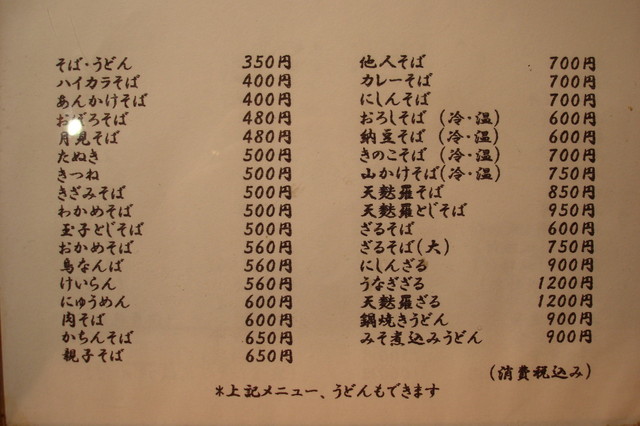 そば・うどん 350円
ハイカラそば 400円
あんかけそば 400円
おぼろそば 480円
月見そば 480円
たぬき 500円
きつね 500円
きざみそば 500円
わかめそば 500円
玉子とじそば 500円
おかめそば 560円
鳥なんば 560円
けいらん 560円
にゅうめん 600円
肉そば 600円
かちんそば 650円
親子そば 650円
他人そば 700円
カレーそば 700円
にしんそば 700円
おろしそば (冷・温) 600円
納豆そば (冷・温) 600円
きのこそば (冷・温) 700円
山かけそば(冷・温) 750円
天麩羅そば 850円
天麩羅とじそば 950円
ざるそば 600円
ざるそば(大) 750円
にしんざる 900円
うなぎざる 1200円
天麩羅ざる 1200円
鍋焼きうどん 900円
みそ煮込みうどん 900円
(消費税込み)
*上記メニュー、うどんもできます